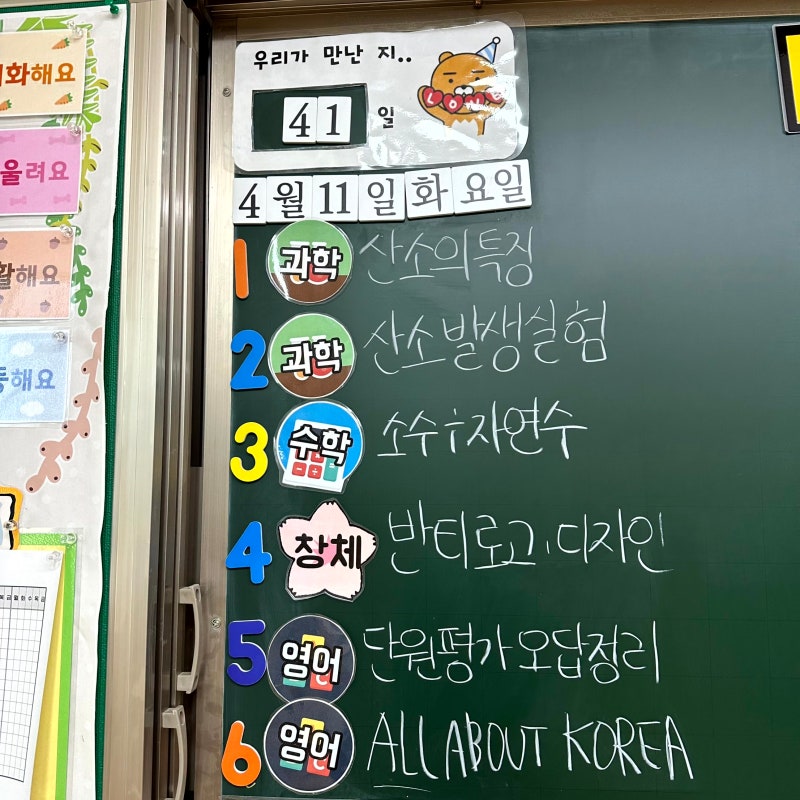 우리가 만난 지..
41 일
LOVE
4월 11일 화요일
1 과학 산소의 특징
2 과학 산소 발생 실험
3 수학 소수÷자연수
4 창체 반티 로고, 디자인
5 영어 단원평가 오답정리
6 영어 ALL ABOUT KOREA
화해요
울려요
활해요
동해요